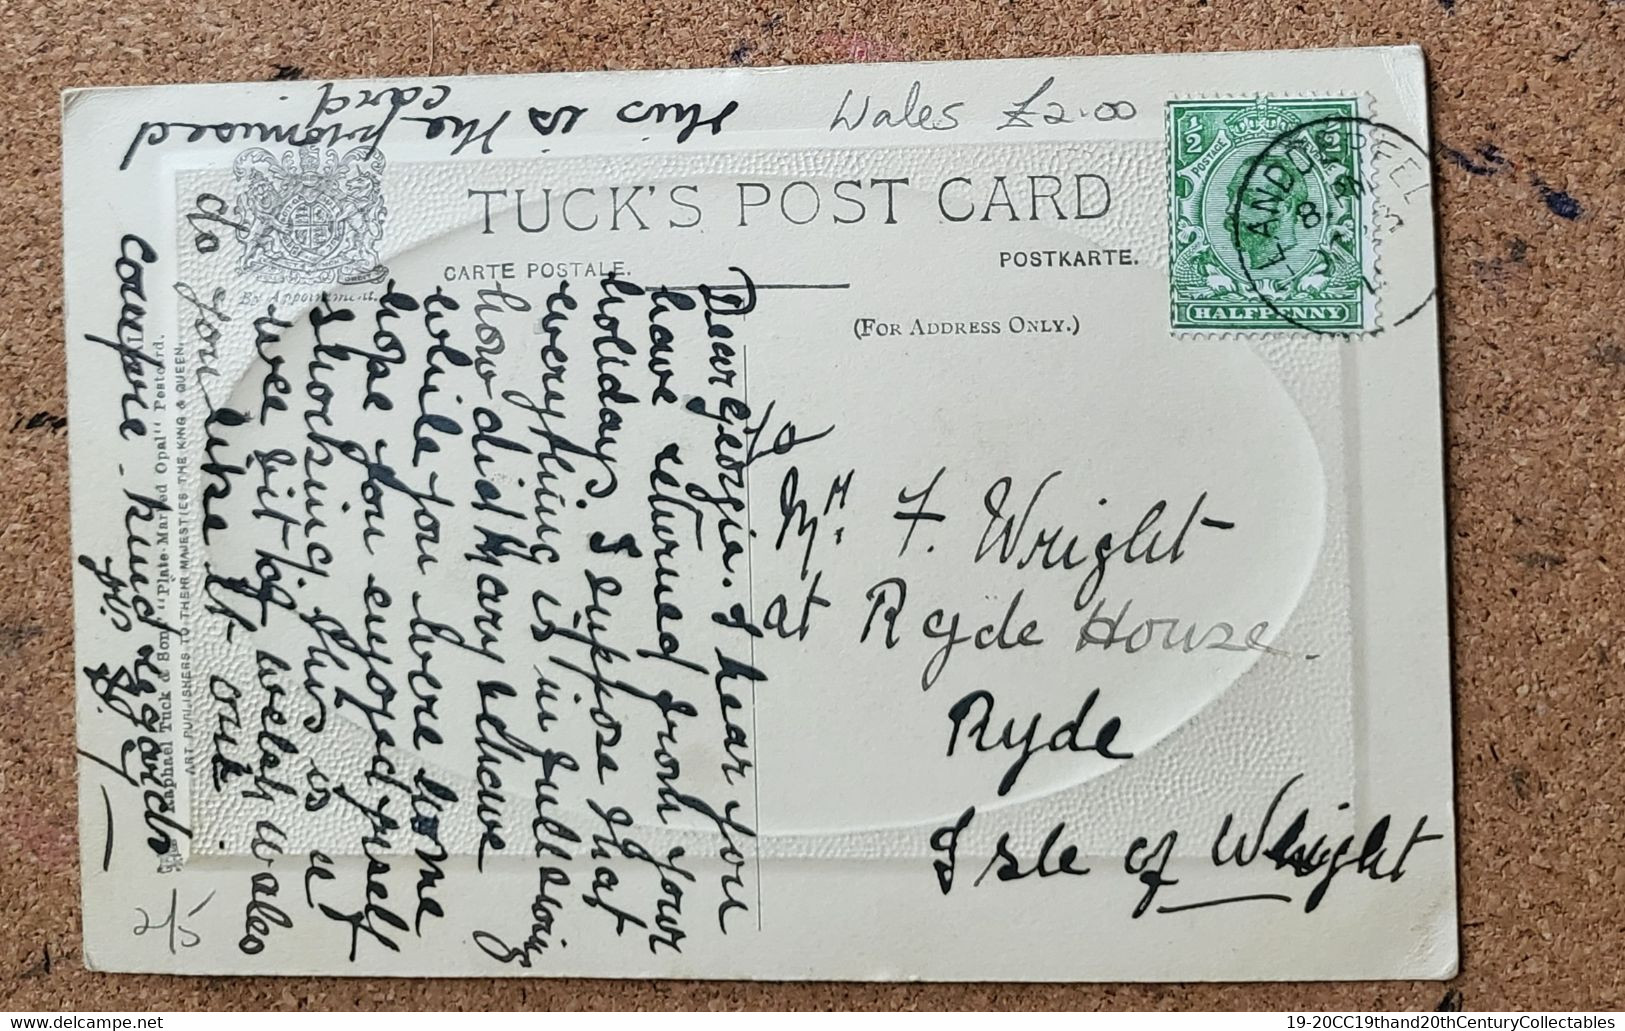 this is the promised
card.
Wales £2.00
TUCK'S POST CARD
CARTE POSTALE.
POSTKARTE.
(FOR ADDRESS ONLY.)
By Appointment.
HALFPENNY
POSTAGE
½
½
8
Dear Georgia. I hear you
have returned from your
holiday. I suppose that
everything is in full swing
how did Mary behave
while you were home
hope you enjoyed yourself
shocking this is a
wee bit of welsh wales
do you like it
kind regards
Mr. F. Wright
at Ryde House.
Ryde
Isle of Wright
Raphael Tuck & Sons' "Plate-Marked Opal" Postcard.
ART PUBLISHERS TO THEIR MAJESTIES THE KING & QUEEN.
2/5
19-20CC19thand20thCenturyCollectables